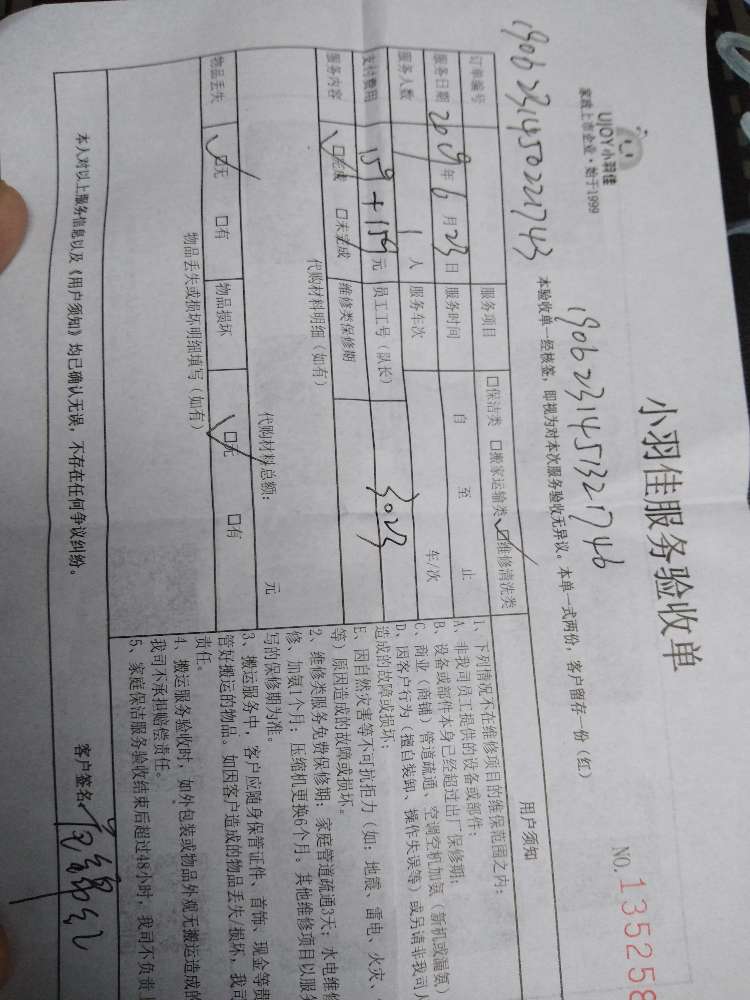 UJOY小羽佳
家政上市企业·始于1999
小羽佳服务验收单
NO.135258
1906231451321746
本验收单一经核签，即视为对本次服务验收无异议。本单一式两份，客户留存一份（红）
1906231450221743
订单编号
服务项目 □保洁类 □搬家运输类 ☑维修清洗类
服务日期 2019年6月23日 服务时间 自 至 止
服务人数 1人 服务车次 车/次
支付费用 159+159元 员工工号（队长） 3023
服务内容 ☑完成 □未完成 维修类保修期
代购材料明细（如有）
代购材料总额： 元
物品丢失 ☑无 □有 物品损坏 ☑无 □有
物品丢失或损坏明细填写（如有）
用户须知
1、下列情况不在维修项目的维保范围之内：
A、非我司员工提供的设备或部件；
B、设备或部件本身已经超过出厂保修期；
C、商业（商铺）管道疏通、空调空机加氨（新机或漏氨）
D、因客户行为（擅自装卸、操作失误等）或另请非我司人
造成的故障或损坏；
E、因自然灾害等不可抗拒力（如：地震、雷电、火灾、
等）原因造成的故障或损坏。
2、维修类服务免费保修期：家庭管道疏通3天；水电维修
修、加氨1个月；压缩机更换6个月。其他维修项目以服务
写的保修期为准。
3、搬运服务中，客户应随身保管证件、首饰、现金等贵
管好搬运的物品。如因客户造成的物品丢失/损坏，我司
责任。
4、搬运服务验收时，如外包装或物品外观无搬运造成的
我司不承担赔偿责任。
5、家庭保洁服务验收结束后超过48小时，我司不负责
本人对以上服务信息以及《用户须知》均已确认无误，不存在任何争议纠纷。
客户签名